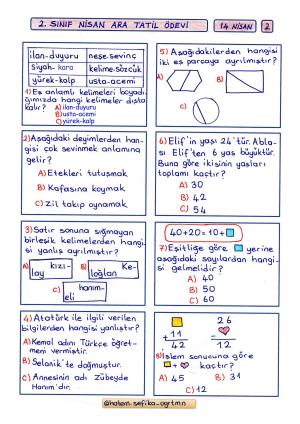 2. SINIF NİSAN ARA TATİL ÖDEVİ
14 NİSAN
2
ilan-duyuru
neşe-sevinç
Siyah-kara
kelime-sözcük
yürek-kalp
usta-acemi
1) Eş anlamlı kelimeleri boyadı-
ğımızda hangi kelimeler dışta
kalır?
A) ilan-duyuru
B) usta-acemi
C) yürek-kalp
2) Aşağıdaki deyimlerden han-
gisi çok sevinmek anlamına
gelir?
A) Etekleri tutuşmak
B) Kafasına koymak
C) Zil takıp oynamak
3) Satır sonuna sığmayan
birleşik kelimelerden hangi-
si yanlış ayrılmıştır?
A)
kızı-
lay
B)
Ke-
loğlan
C)
hanım-
eli
4) Atatürk ile ilgili verilen
bilgilerden hangisi yanlıştır?
A) Kemal adını Türkçe öğret-
meni vermiştir.
B) Selanik'te doğmuştur.
C) Annesinin adı Zübeyde
Hanım'dır.
5) Aşağıdakilerden hangisi
iki eş parçaya ayrılmıştır?
A)
B)
C)
6) Elif'in yaşı 24'tür. Abla-
sı Elif'ten 6 yaş büyüktür.
Buna göre ikisinin yaşları
toplamı kaçtır?
A) 30
B) 42
C) 54
40+20=10+
7) Eşitliğe göre yerine
aşağıdaki sayılardan hangi-
si gelmelidir?
A) 40
B) 50
C) 60
+11
42
26
-
12
8) İşlem sonucuna göre
+ kaçtır?
A) 45
B) 31
C) 12
@hatem.sefika_ogrtmn